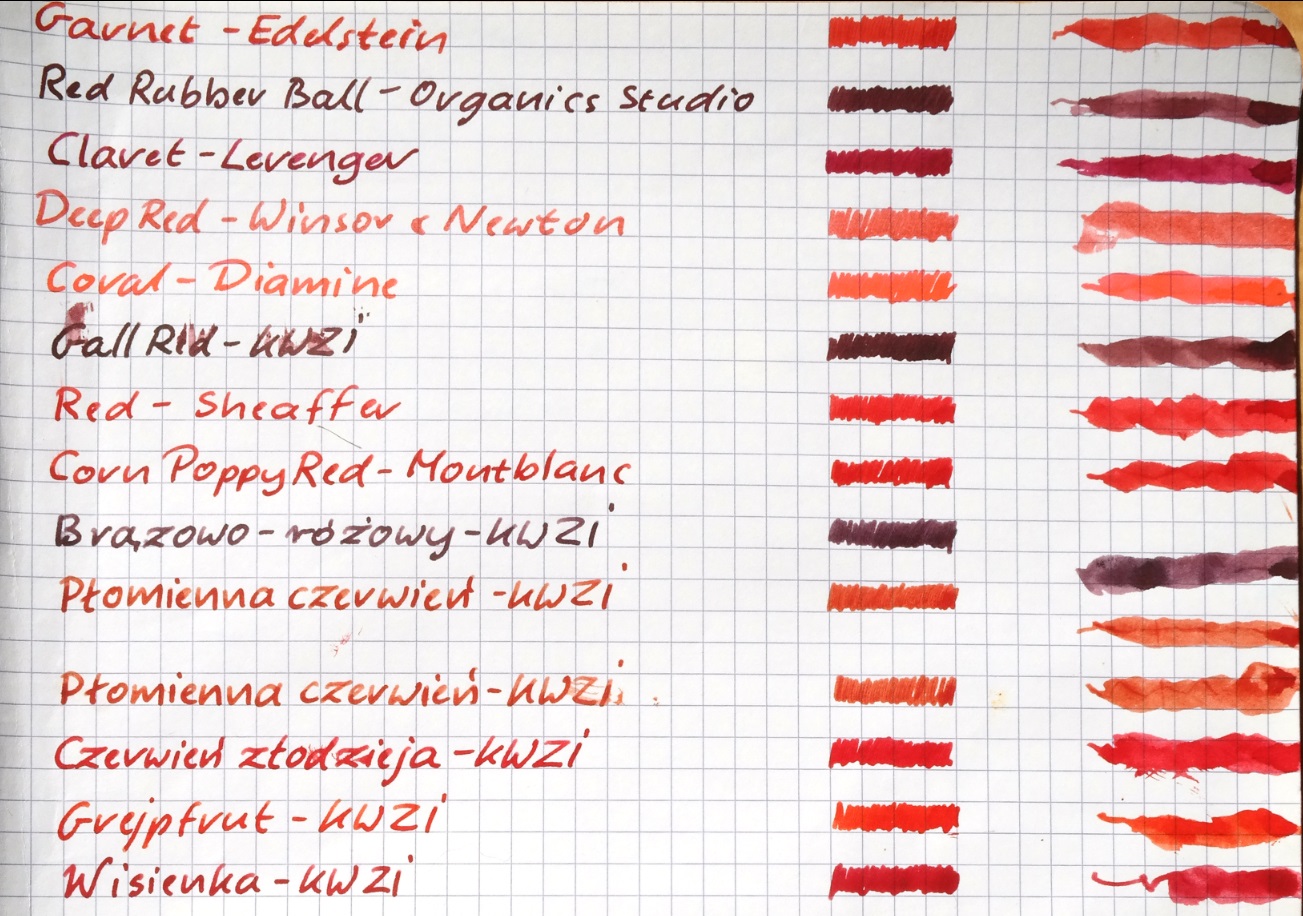 Garnet - Edelstein
Red Rubber Ball - Organics Studio
Claret - Levenger
Deep Red - Winsor & Newton
Coral - Diamine
Gall Red - KWZI
Red - Sheaffer
Corn Poppy Red - Montblanc
Brązowo - różowy - KWZI
Płomienna czerwień - KWZI
Płomienna czerwień - KWZI
Czerwień złodzieja - KWZI
Grejpfrut - KWZI
Wisienka - KWZI